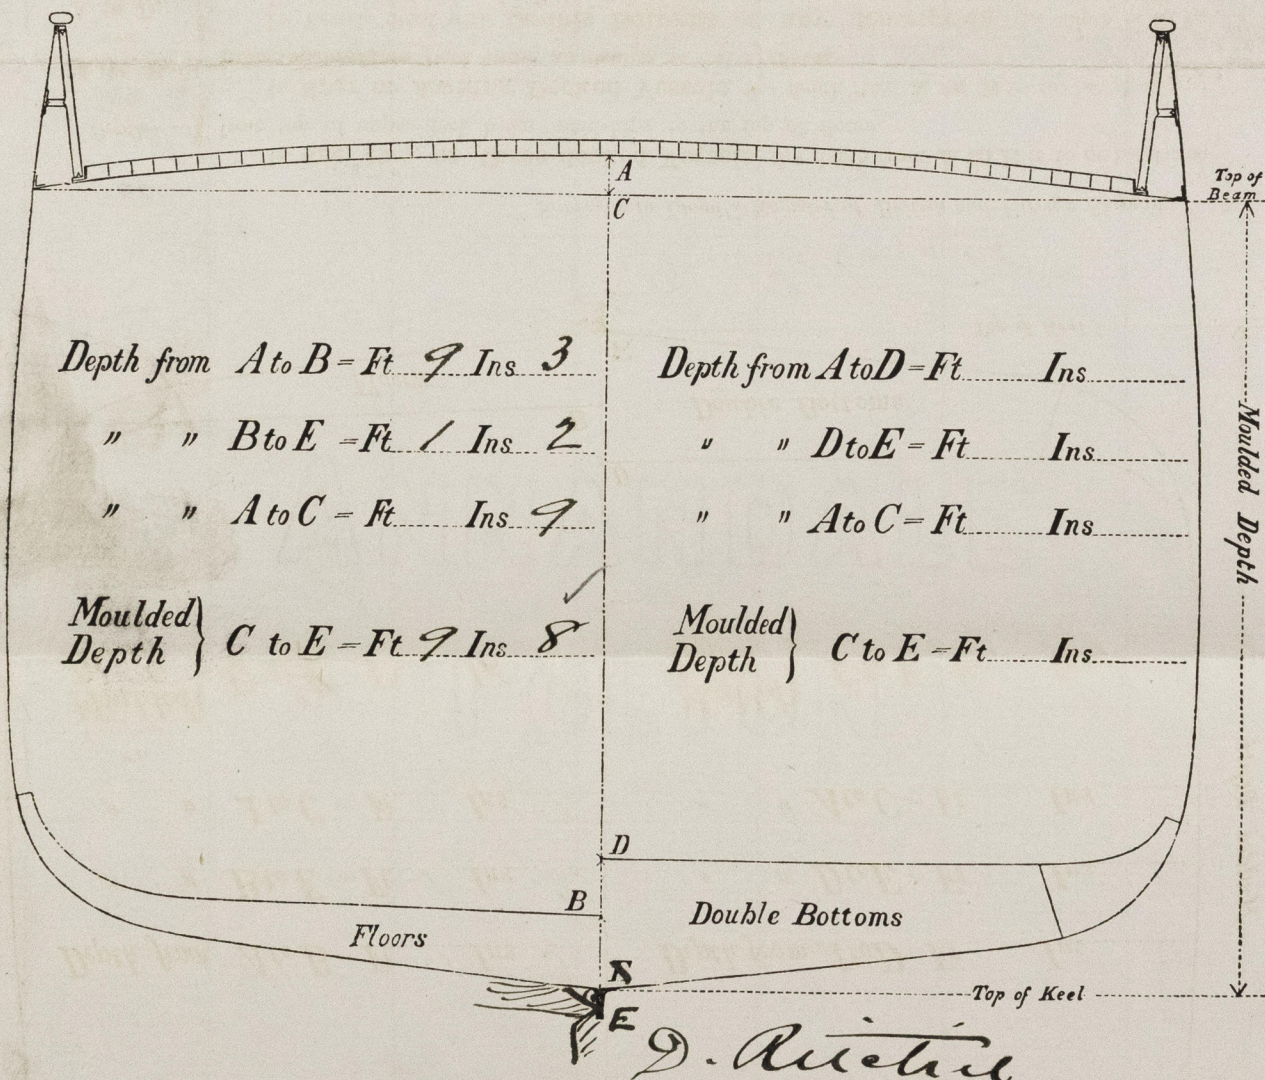 A
C
Top of
Beam
Depth from A to B = Ft 9 Ins 3
" " B to E = Ft 1 Ins 2
" " A to C = Ft Ins 9
Moulded
Depth } C to E = Ft 9 Ins 8
Depth from A to D = Ft Ins
" " D to E = Ft Ins
" " A to C = Ft Ins
Moulded
Depth } C to E = Ft Ins
Moulded Depth
D
B
Floors
Double Bottoms
Top of Keel
E
D. Ritchie